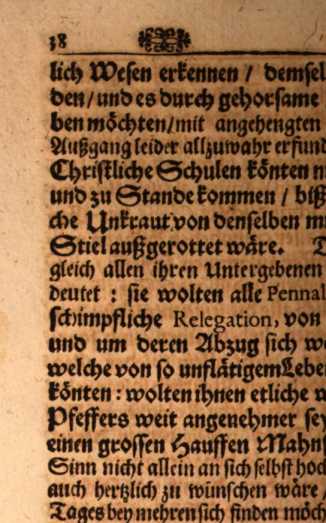 38
lich Wesen erkennen / demsel
den / und es durch gehorsame
ben möchten / mit angehengten
Außgang leider allzuwahr erfund
Christliche Schulen könten n
und zu Stande kommen / biß
che Unkraut von denselben m
Stiel außgerottet wäre.
gleich allen ihren Untergebenen
deutet : sie wolten alle Pennal
schimpfliche Relegation, von
und um deren Abzug sich w
welche von so unflätigem Lebe
könten : wolten ihnen etliche w
Pfeffers weit angenehmer sey
einen grossen Hauffen Mahn
Sinn nicht allein an sich selbst hoc
auch hertzlich zu wünschen wäre
Tages bey mehren sich finden möch